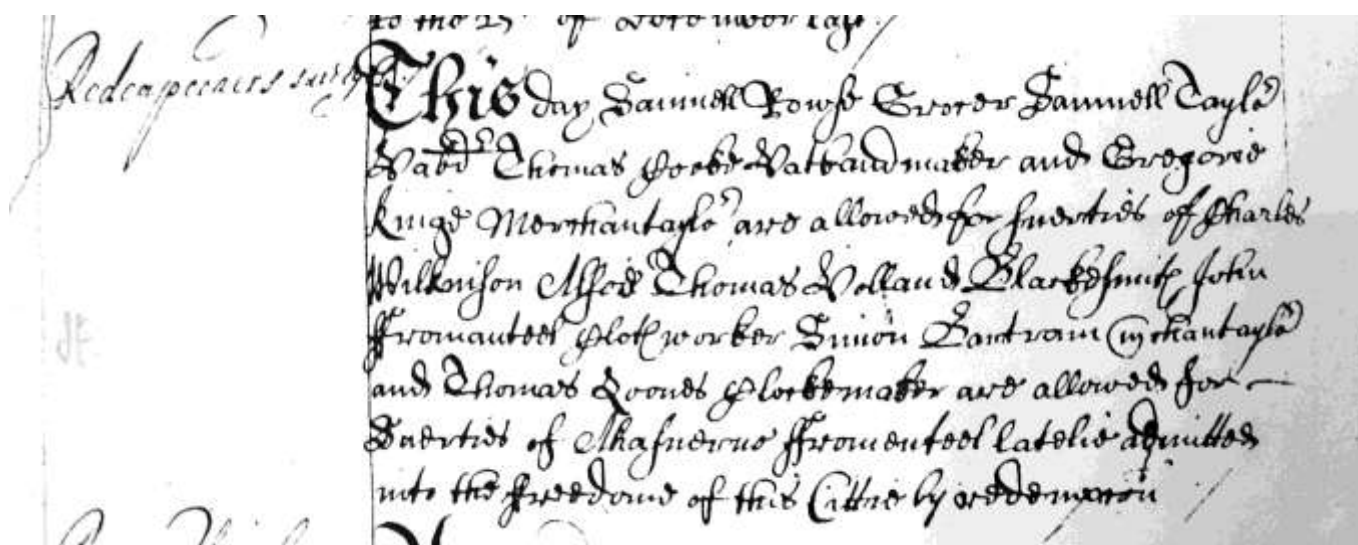 to the 25 of December last
Redempconers suertyes
This day Samuell Rowse Grocer Samuell Taylor
Thomas Cooke Hatbandmaker and Gregorie
Kinge Merchantaylor are allowed for suerties of Charles
Wilkinson Alsoe Thomas Holland Blackesmith John
Fromanteel Clothworker Simon Bartram mchantaylor
and Thomas Loomes Clockemaker are allowed for
Suerties of Ahasuerus Fromenteel latelie admitted
into the freedome of this Cittie by redempcon